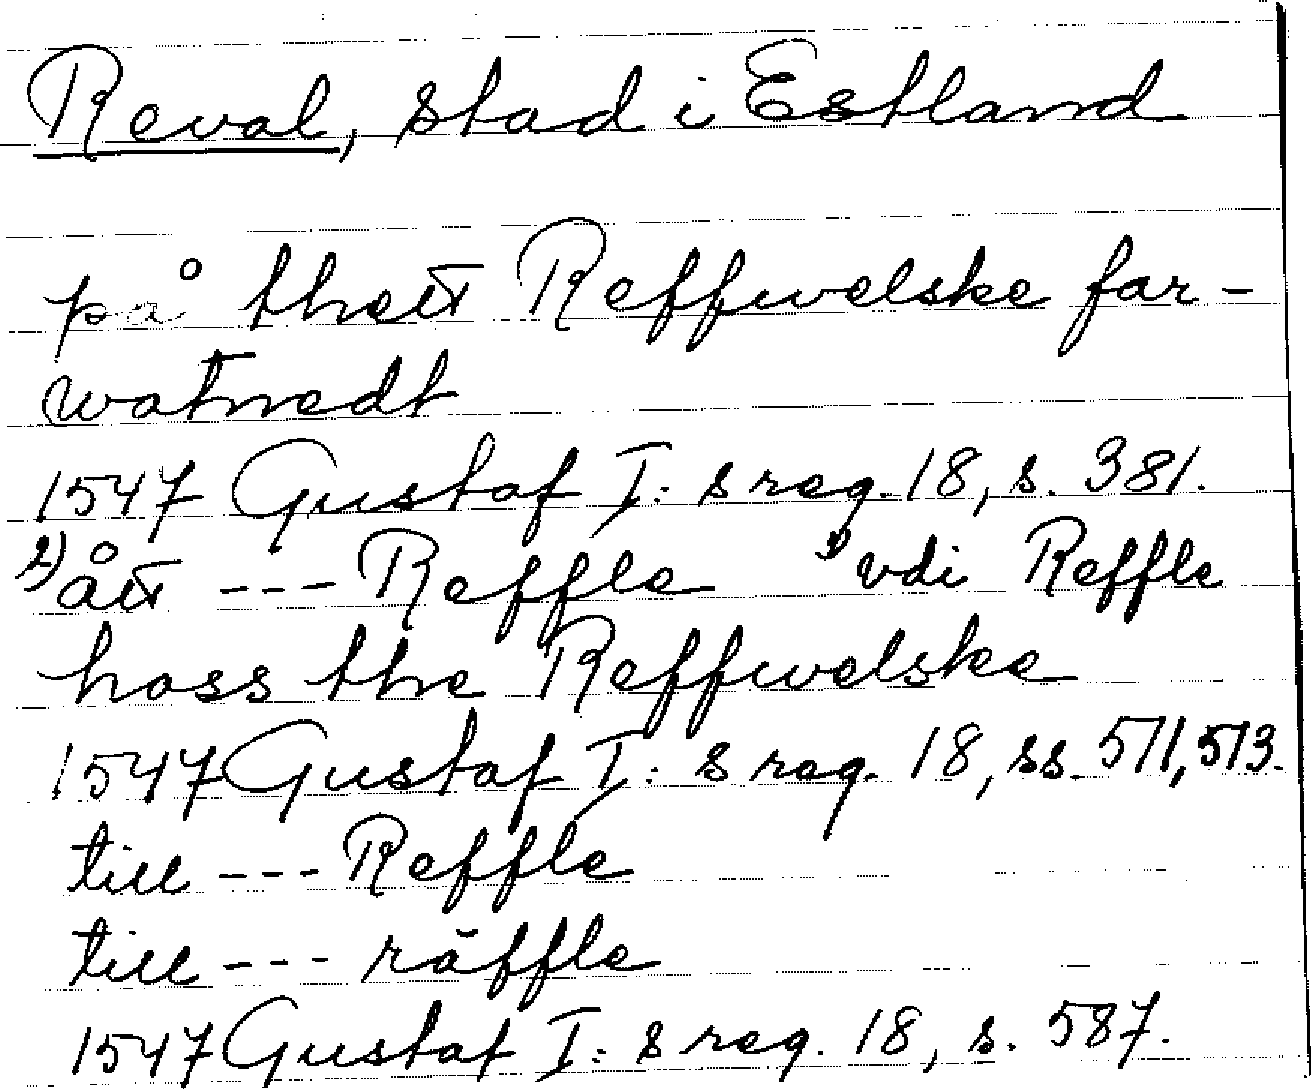 Reval, stad i Estland
på thett Reffwelske far-
watnedt
1547 Gustaf I:s reg. 18, s. 381.
2) ått --- Reffle 1) vdi Reffle
hoss the Reffwelske
1547 Gustaf I:s reg. 18, ss. 511, 513.
till --- Reffle
till --- räffle
1547 Gustaf I:s reg. 18, s. 587.